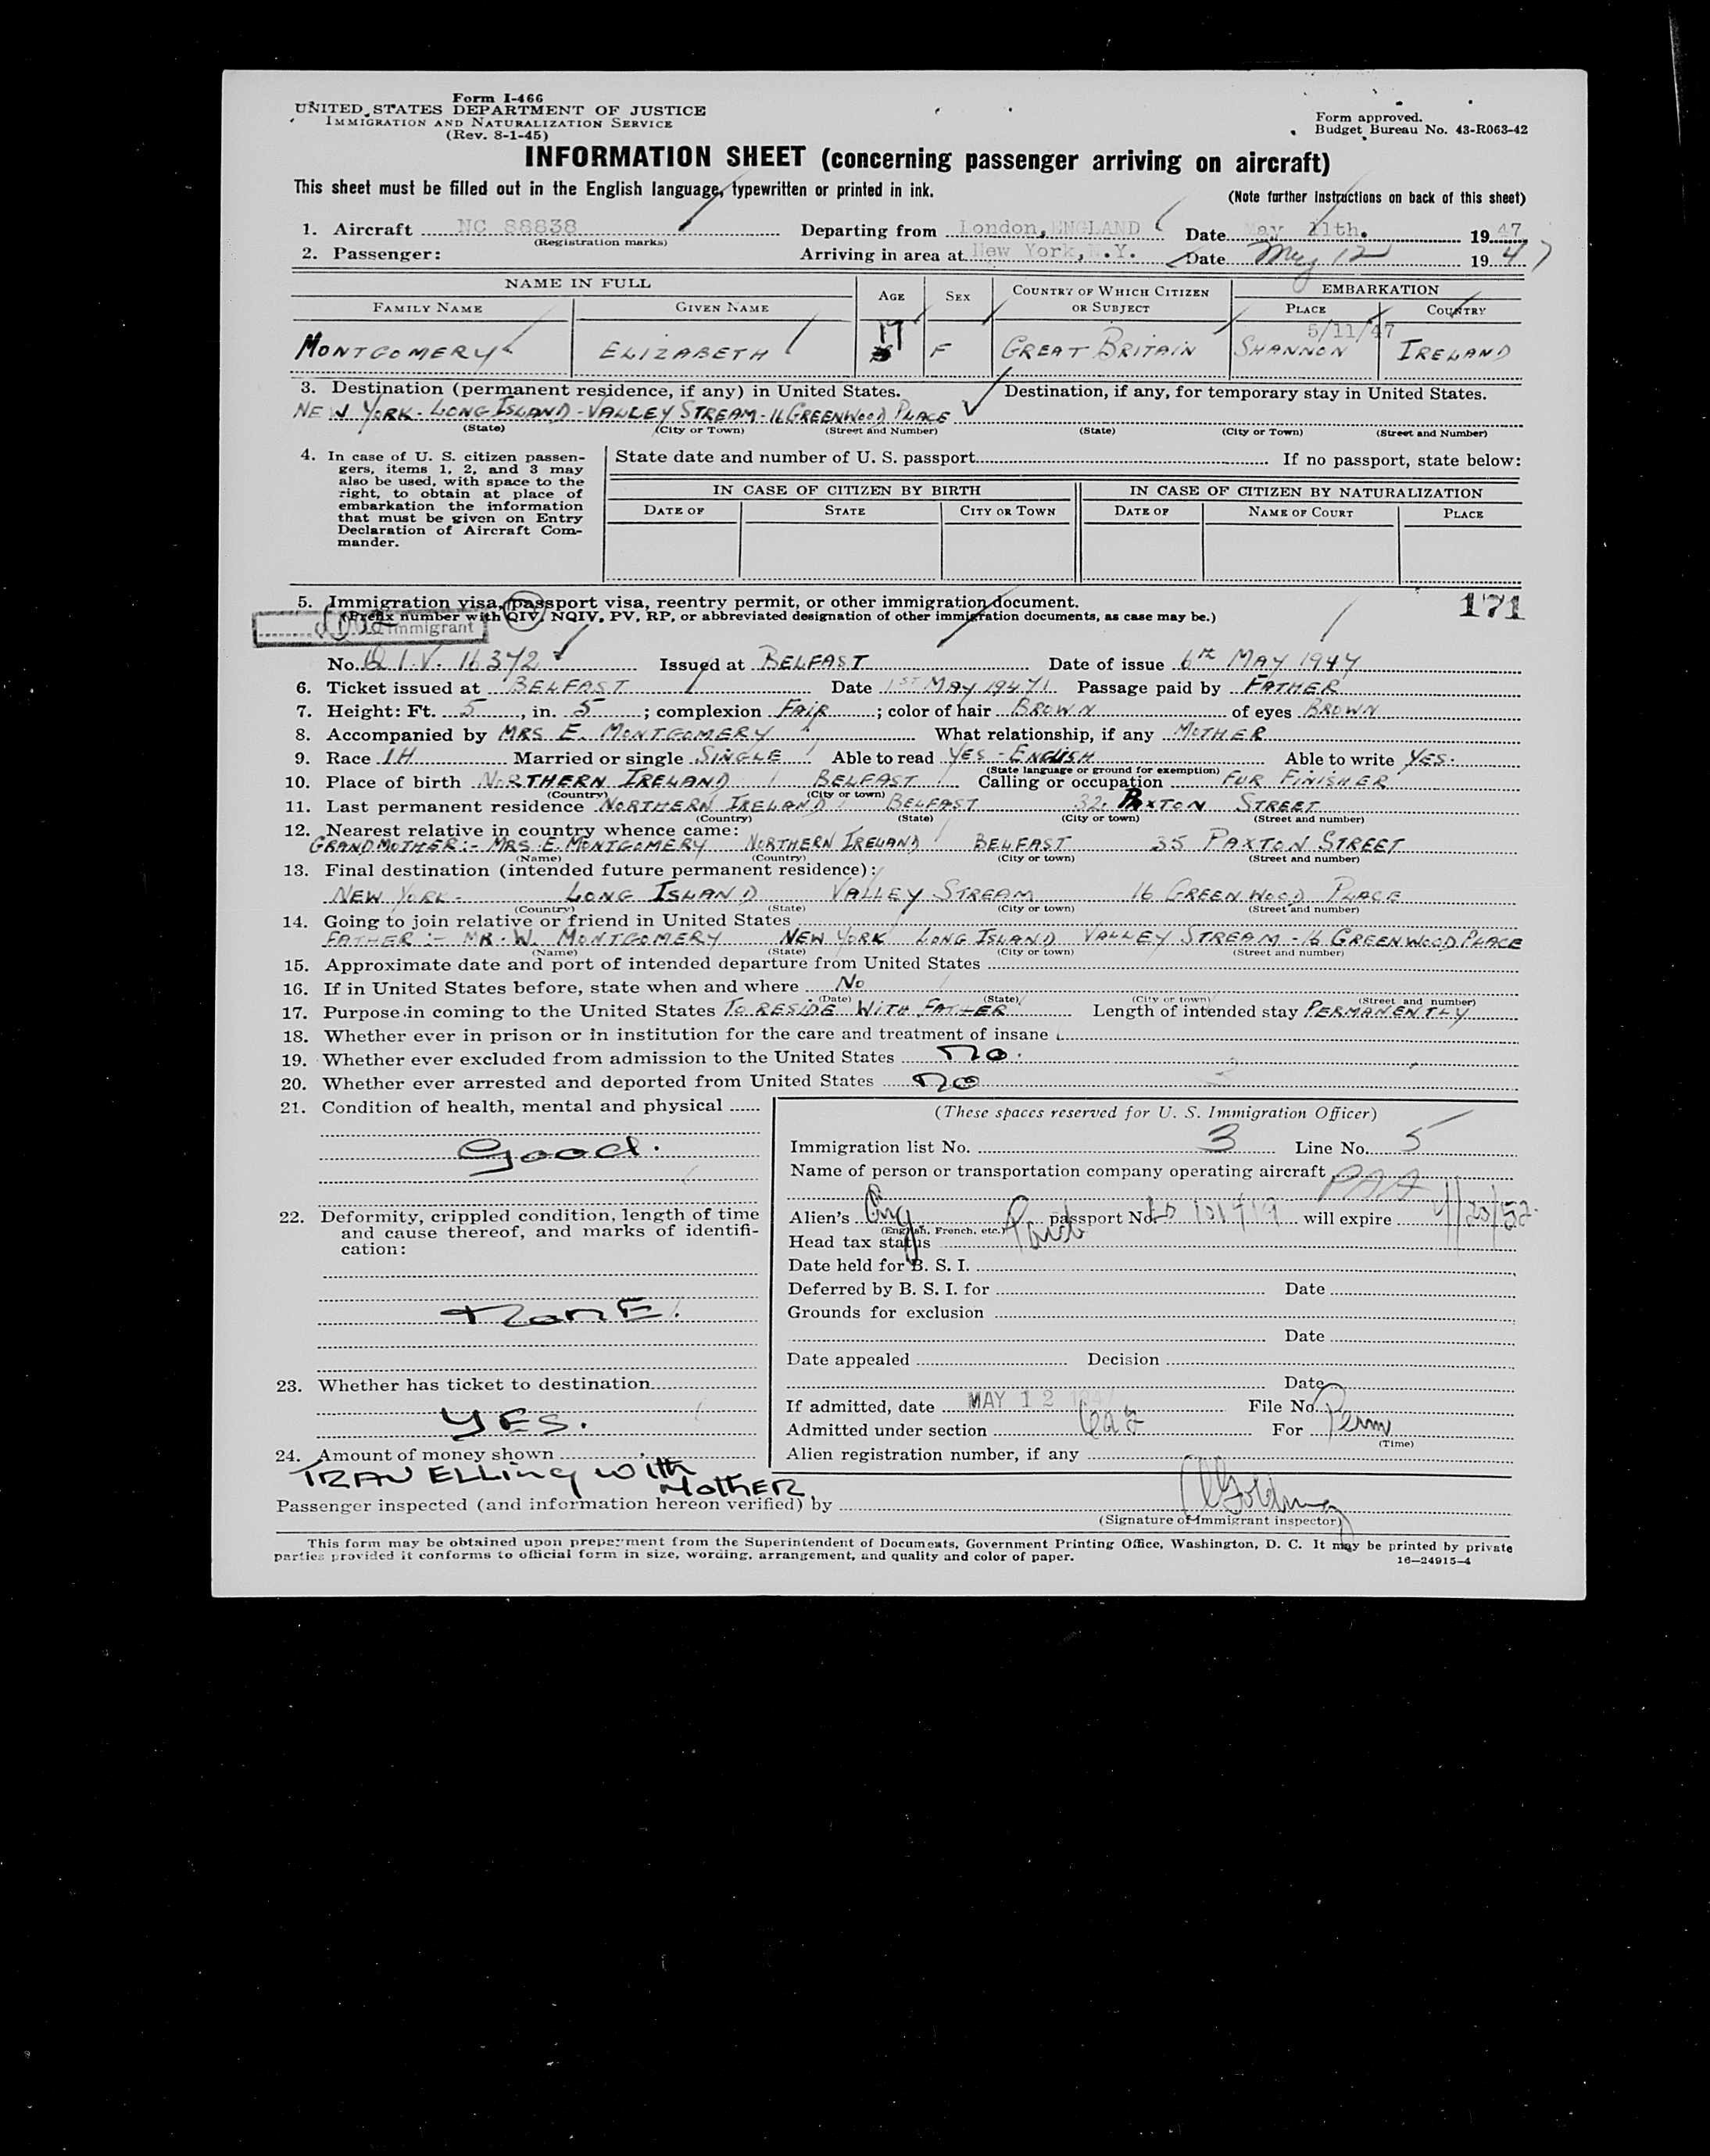 Form I-466
UNITED STATES DEPARTMENT OF JUSTICE
IMMIGRATION AND NATURALIZATION SERVICE
(Rev. 8-1-45)
Form approved.
Budget Bureau No. 43-R063-42
INFORMATION SHEET (concerning passenger arriving on aircraft)
This sheet must be filled out in the English language, typewritten or printed in ink.
(Note further instructions on back of this sheet)
1. Aircraft NC 88838 Departing from London, ENGLAND Date May 11th. 1947
(Registration marks)
2. Passenger: Arriving in area at New York, N.Y. Date May 12 1947
NAME IN FULL AGE SEX COUNTRY OF WHICH CITIZEN OR SUBJECT EMBARKATION
FAMILY NAME GIVEN NAME PLACE COUNTRY
5/11/47
MONTGOMERY ELIZABETH 17 F GREAT BRITAIN SHANNON IRELAND
3. Destination (permanent residence, if any) in United States. Destination, if any, for temporary stay in United States.
NEW YORK - LONG ISLAND - VALLEY STREAM - 16 GREENWOOD PLACE
(State) (City or Town) (Street and Number) (State) (City or Town) (Street and Number)
4. In case of U. S. citizen passengers, items 1, 2, and 3 may also be used, with space to the right, to obtain at place of embarkation the information that must be given on Entry Declaration of Aircraft Commander.
State date and number of U. S. passport If no passport, state below:
IN CASE OF CITIZEN BY BIRTH IN CASE OF CITIZEN BY NATURALIZATION
DATE OF STATE CITY OR TOWN DATE OF NAME OF COURT PLACE
5. Immigration visa, passport visa, reentry permit, or other immigration document. 171
(Prefix number with QIV, NQIV, PV, RP, or abbreviated designation of other immigration documents, as case may be.)
Immigrant
No. Q.I.V. 16372 Issued at BELFAST Date of issue 6TH MAY 1947
6. Ticket issued at BELFAST Date 1ST MAY 1947 Passage paid by FATHER
7. Height: Ft. 5, in. 5; complexion FAIR; color of hair BROWN of eyes BROWN
8. Accompanied by MRS E. MONTGOMERY What relationship, if any MOTHER
9. Race IH Married or single SINGLE Able to read YES - ENGLISH Able to write YES.
(State language or ground for exemption)
10. Place of birth NORTHERN IRELAND BELFAST Calling or occupation FUR FINISHER
(Country) (City or town)
11. Last permanent residence NORTHERN IRELAND BELFAST 32 PAXTON STREET
(Country) (State) (City or town) (Street and number)
12. Nearest relative in country whence came:
GRANDMOTHER:- MRS E. MONTGOMERY NORTHERN IRELAND BELFAST 35 PAXTON STREET
(Name) (Country) (City or town) (Street and number)
13. Final destination (intended future permanent residence):
NEW YORK - LONG ISLAND VALLEY STREAM 16 GREENWOOD PLACE
(Country) (State) (City or town) (Street and number)
14. Going to join relative or friend in United States
FATHER :- MR. W. MONTGOMERY NEW YORK LONG ISLAND VALLEY STREAM - 16 GREENWOOD PLACE
(Name) (State) (City or town) (Street and number)
15. Approximate date and port of intended departure from United States
16. If in United States before, state when and where NO
(Date) (State) (City or town) (Street and number)
17. Purpose in coming to the United States TO RESIDE WITH FATHER Length of intended stay PERMANENTLY
18. Whether ever in prison or in institution for the care and treatment of insane
19. Whether ever excluded from admission to the United States no.
20. Whether ever arrested and deported from United States no
21. Condition of health, mental and physical
Good.
22. Deformity, crippled condition, length of time and cause thereof, and marks of identification:
NonE.
23. Whether has ticket to destination
YES.
24. Amount of money shown
TRAVELLing with MothER
(These spaces reserved for U. S. Immigration Officer)
Immigration list No. 3 Line No. 5
Name of person or transportation company operating aircraft PAA
Alien's Eng passport No. will expire 4/20/52
(English, French, etc.)
Head tax status Paid
Date held for B. S. I.
Deferred by B. S. I. for Date
Grounds for exclusion
Date
Date appealed Decision
Date
If admitted, date MAY 12 1947 File No.
Admitted under section For Perm
(Time)
Alien registration number, if any
Passenger inspected (and information hereon verified) by
(Signature of Immigrant inspector)
This form may be obtained upon prepayment from the Superintendent of Documents, Government Printing Office, Washington, D. C. It may be printed by private
parties provided it conforms to official form in size, wording, arrangement, and quality and color of paper. 16—24915-4